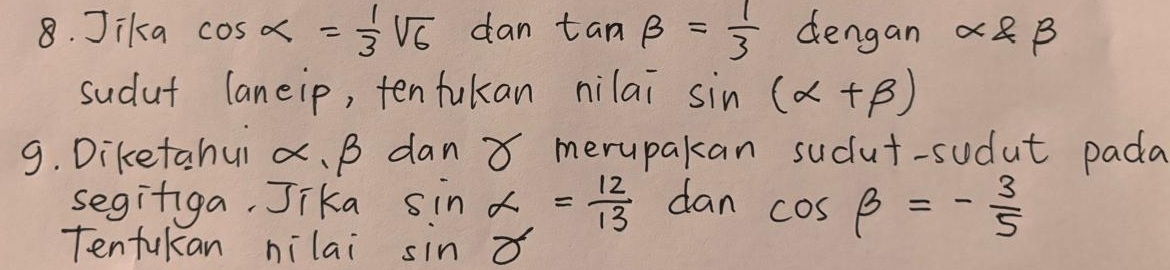 8. Jika cos α = 1/3 √6 dan tan β = 1/3 dengan α & β
sudut lancip, tentukan nilai sin (α + β)
9. Diketahui α, β dan γ merupakan sudut-sudut pada
segitiga. Jika sin α = 12/13 dan cos β = - 3/5
Tentukan nilai sin γ